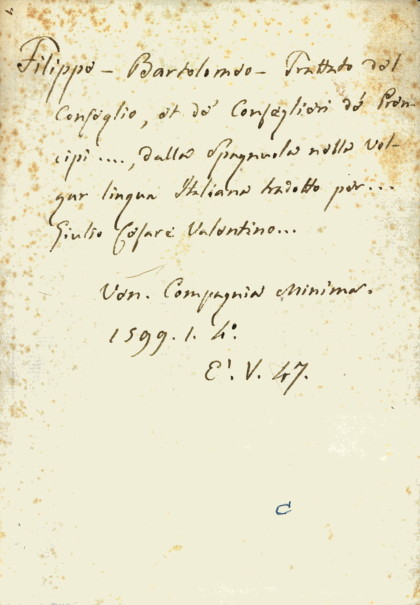 Filippe - Bartolomeo - Trattato del
Conseglio, et de' Conseglieri de' Pren-
cipi ...., dalla Spagnuola nella vol-
gar lingua Italiana tradotto per...
Giulio Cesare Valentino...
Ven. Compagnia Minima.
1599. 1. 4º.
E'. V. 47.
C